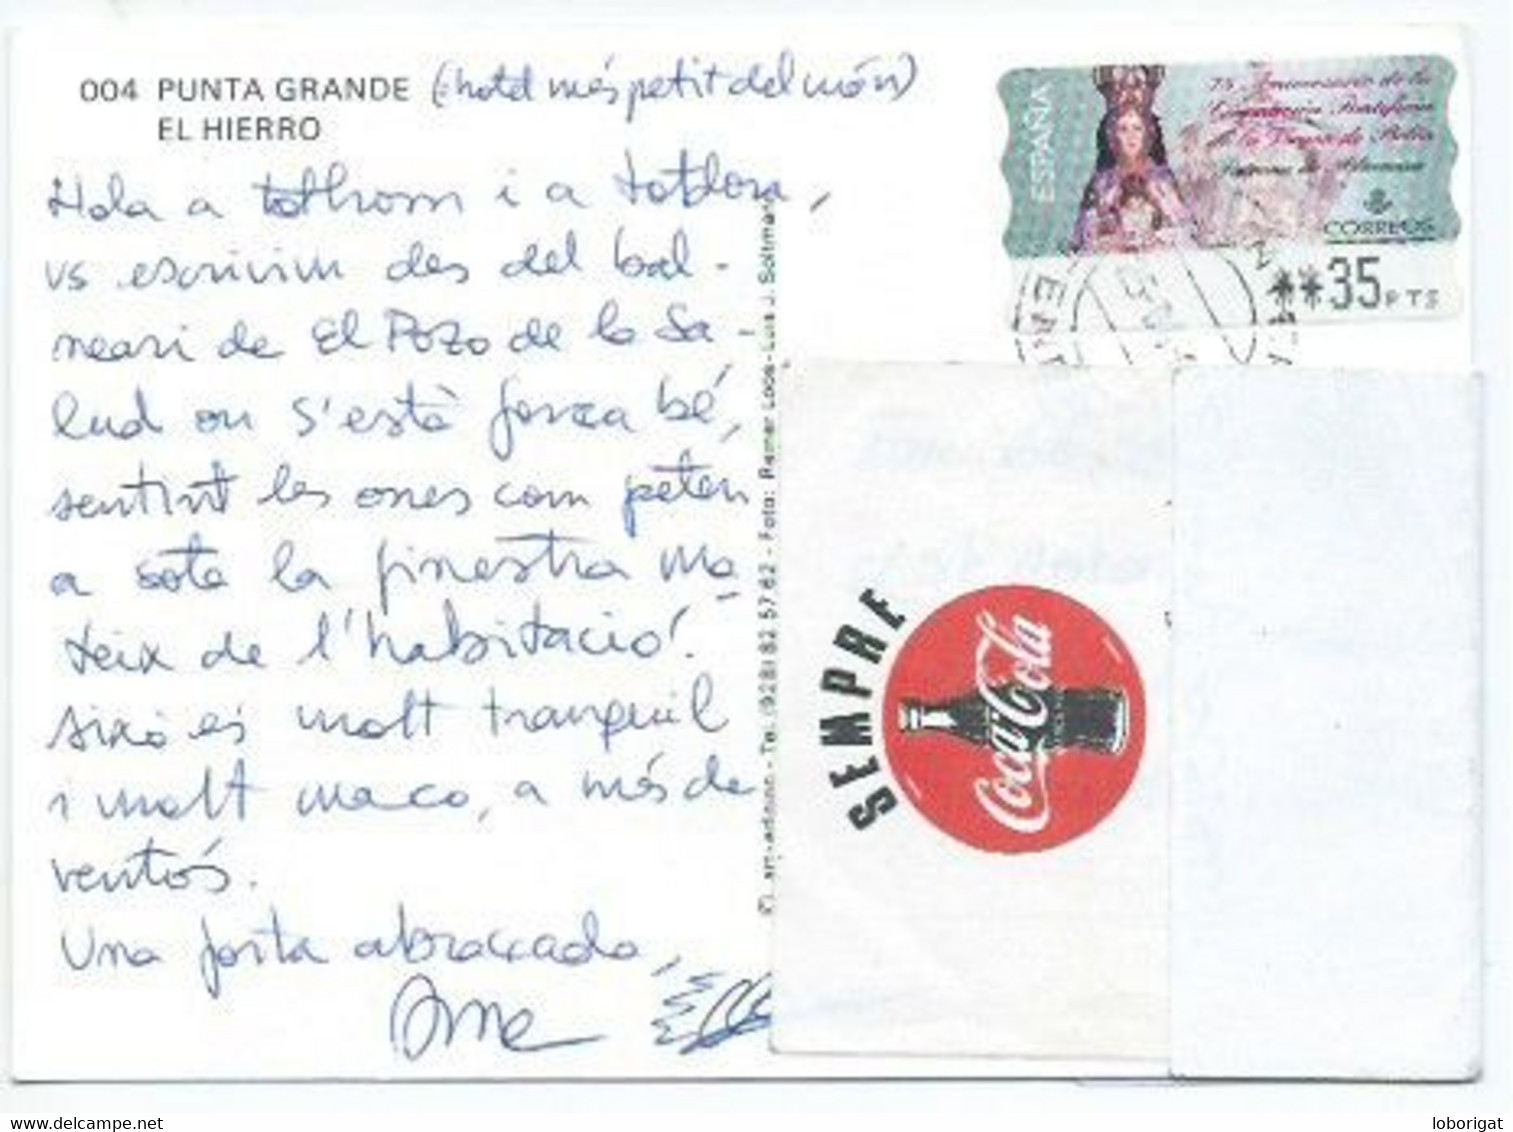 004 PUNTA GRANDE (hotel més petit del món)
EL HIERRO
Hola a tothom i a totdona,
us escrivim des del bal-
neari de El Pozo de la Sa-
lud on s'està força bé,
sentint les ones com peten
a sota la finestra ma-
teix de l'habitació.
Això és molt tranquil
i molt maco, a més de
ventós.
Una forta abraçada,
Foto: Reiner Loos-Luis J. Soltmann
Tel. (928) 82 57 62
ESPAÑA
75 Aniversario de la
Coronación Pontificia
de la Virgen de
Patrona de
CORREOS
**35 PTS
SEMPRE
Coca-Cola
www.delcampe.net
loborigat